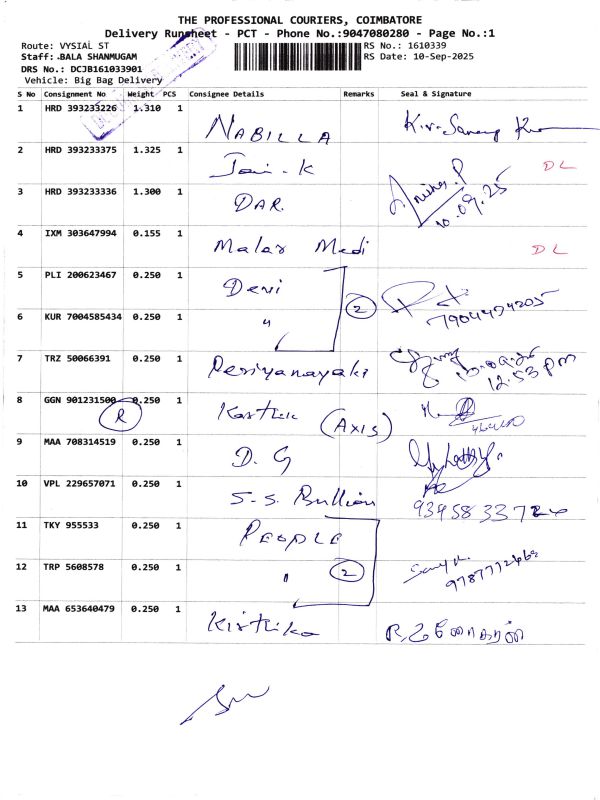 THE PROFESSIONAL COURIERS, COIMBATORE
Delivery Runsheet - PCT - Phone No.:9047080280 - Page No.:1
Route: VYSIAL ST
RS No.: 1610339
Staff: BALA SHANMUGAM
RS Date: 10-Sep-2025
DRS No.: DCJB161033901
Vehicle: Big Bag Delivery
S No Consignment No Weight PCS Consignee Details Remarks Seal & Signature
1 HRD 393233226 1.310 1 NABILLA
2 HRD 393233375 1.325 1 Jain - K DL
3 HRD 393233336 1.300 1 DAR. 10.09.25
4 IXM 303647994 0.155 1 Malar Medi DL
5 PLI 200623467 0.250 1 Devi
2
6 KUR 7004585434 0.250 1 " 7904494205
7 TRZ 50066391 0.250 1 Periyanayaki 12.53 pm
8 GGN 901231500 0.250 1 Karthik (AXIS)
R
9 MAA 708314519 0.250 1 D. G
10 VPL 229657071 0.250 1 S.S. Bullion
11 TKY 955533 0.250 1 PEOPLE
12 TRP 5608578 0.250 1 " 2
13 MAA 653640479 0.250 1 Kirthika